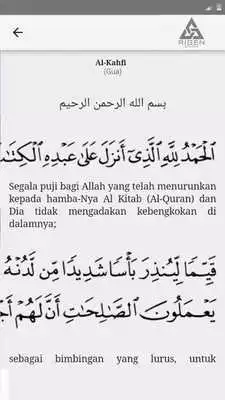 RISEN
Al-Kahfi
(Gua)
بسم الله الرحمن الرحيم
الْحَمْدُ لِلَّهِ الَّذِي أَنْزَلَ عَلَى عَبْدِهِ الْكِتَا
Segala puji bagi Allah yang telah menurunkan
kepada hamba-Nya Al Kitab (Al-Quran) dan
Dia tidak mengadakan kebengkokan di
dalamnya;
قَيِّمًا لِيُنْذِرَ بَأْسًا شَدِيدًا مِنْ لَدُنْهُ
يَعْمَلُونَ الصَّالِحَاتِ أَنَّ لَهُمْ أَجْ
sebagai bimbingan yang lurus, untuk